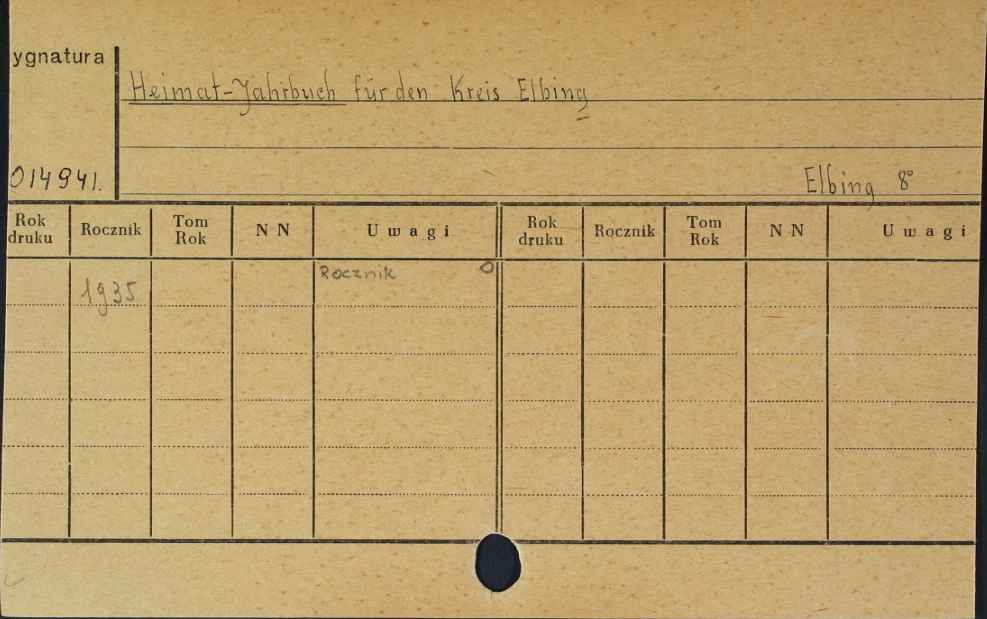 ygnatura
Heimat-Jahrbuch für den Kreis Elbing
014941.
Elbing 8°
Rok druku Rocznik Tom Rok N N Uwagi Rok druku Rocznik Tom Rok N N Uwagi
Rocznik O
1935